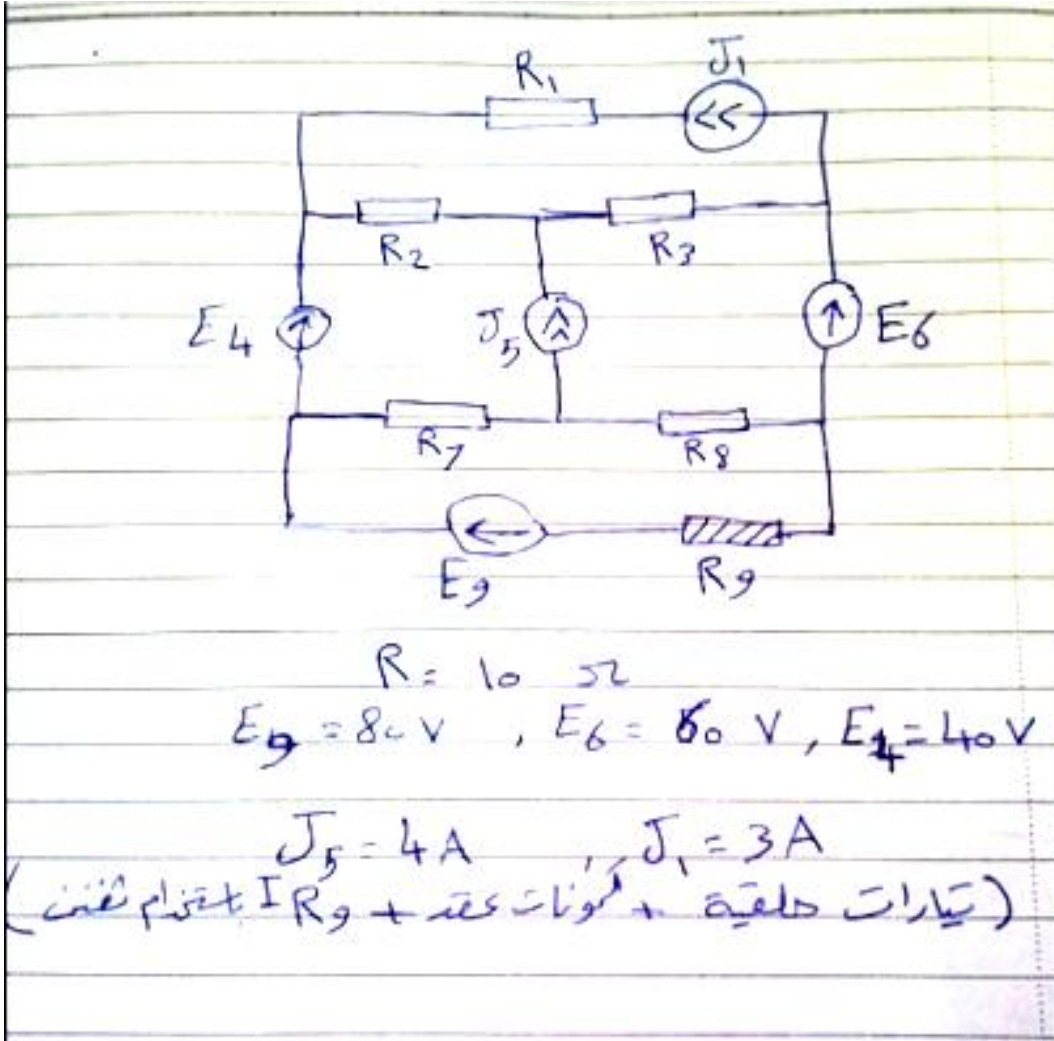 R1 J1
R2 R3
E4 J5 E6
R7 R8
E9 R9
R = 10 Ω
E9 = 80 V , E6 = 60 V , E4 = 40 V
J5 = 4 A , J1 = 3 A
(تيارات حلقية + كمونات عقد + IR9 باستخدام ثفنن)